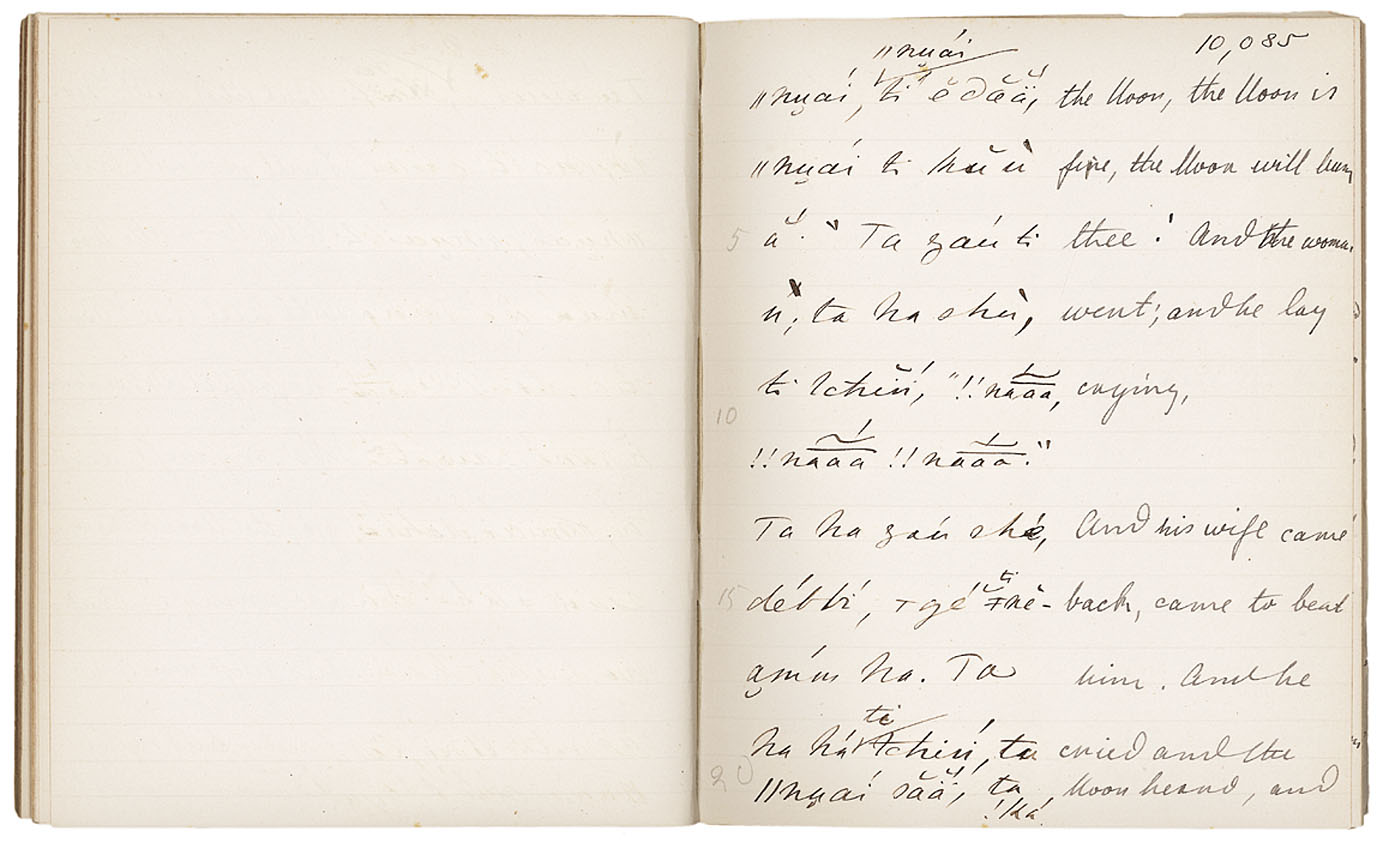 10,085
‖nu̬ái
‖nu̬ái, ti ĕ dā̆ä̆, the Moon, the Moon is
‖nu̬ái ti kŭ ù fire, the Moon will burn
5 ắ." Ta zaú ti thee! And the woman
ù; ta ha shù, went; and he lay
ti tchĭŋ́, "!!nāāā, crying,
10
!!nāāā !!nāāā."
Ta ha zaú shé, And his wife came
15 débbí, T gé ti nĕ- back, came to beat
ha. Ta him. And he
ti
ha há tchiń, ta cried and the
20 ‖nu̬aí sā̆ä̆, ta Moon heard, and
!ká